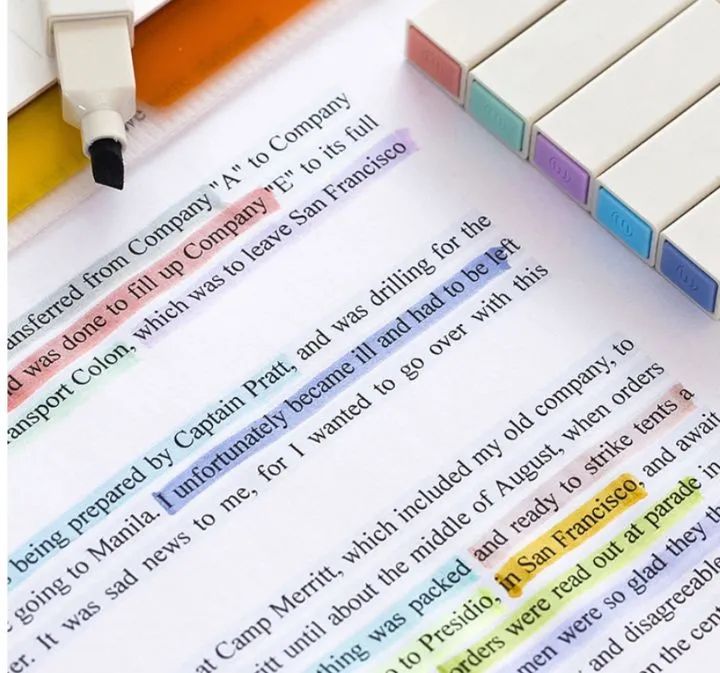 ansferred from Company "A" to Company
d was done to fill up Company "E" to its full
ransport Colon, which was to leave San Francisco
being prepared by Captain Pratt, and was drilling for the
going to Manila. I unfortunately became ill and had to be left
er. It was sad news to me, for I wanted to go over with this
at Camp Merritt, which included my old company, to
itt until about the middle of August, when orders
thing was packed and ready to strike tents a
to Presidio, in San Francisco, and await
orders were read out at parade in
men were so glad they
and disagreeable
n the cent